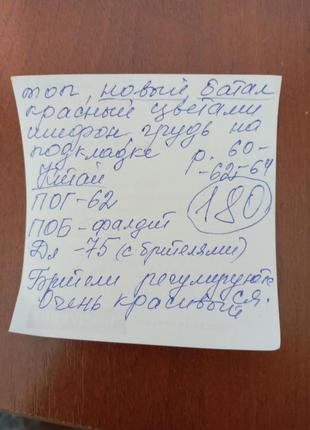 топ, новый, батал
красный цветами
шифон, грудь на
подкладке р: 60-
-62-64
Китай
180
ПОГ-62
ПОБ-фалдит
Дл -75 (с брителями)
Брители регулируютс
ся.
Очень красивый